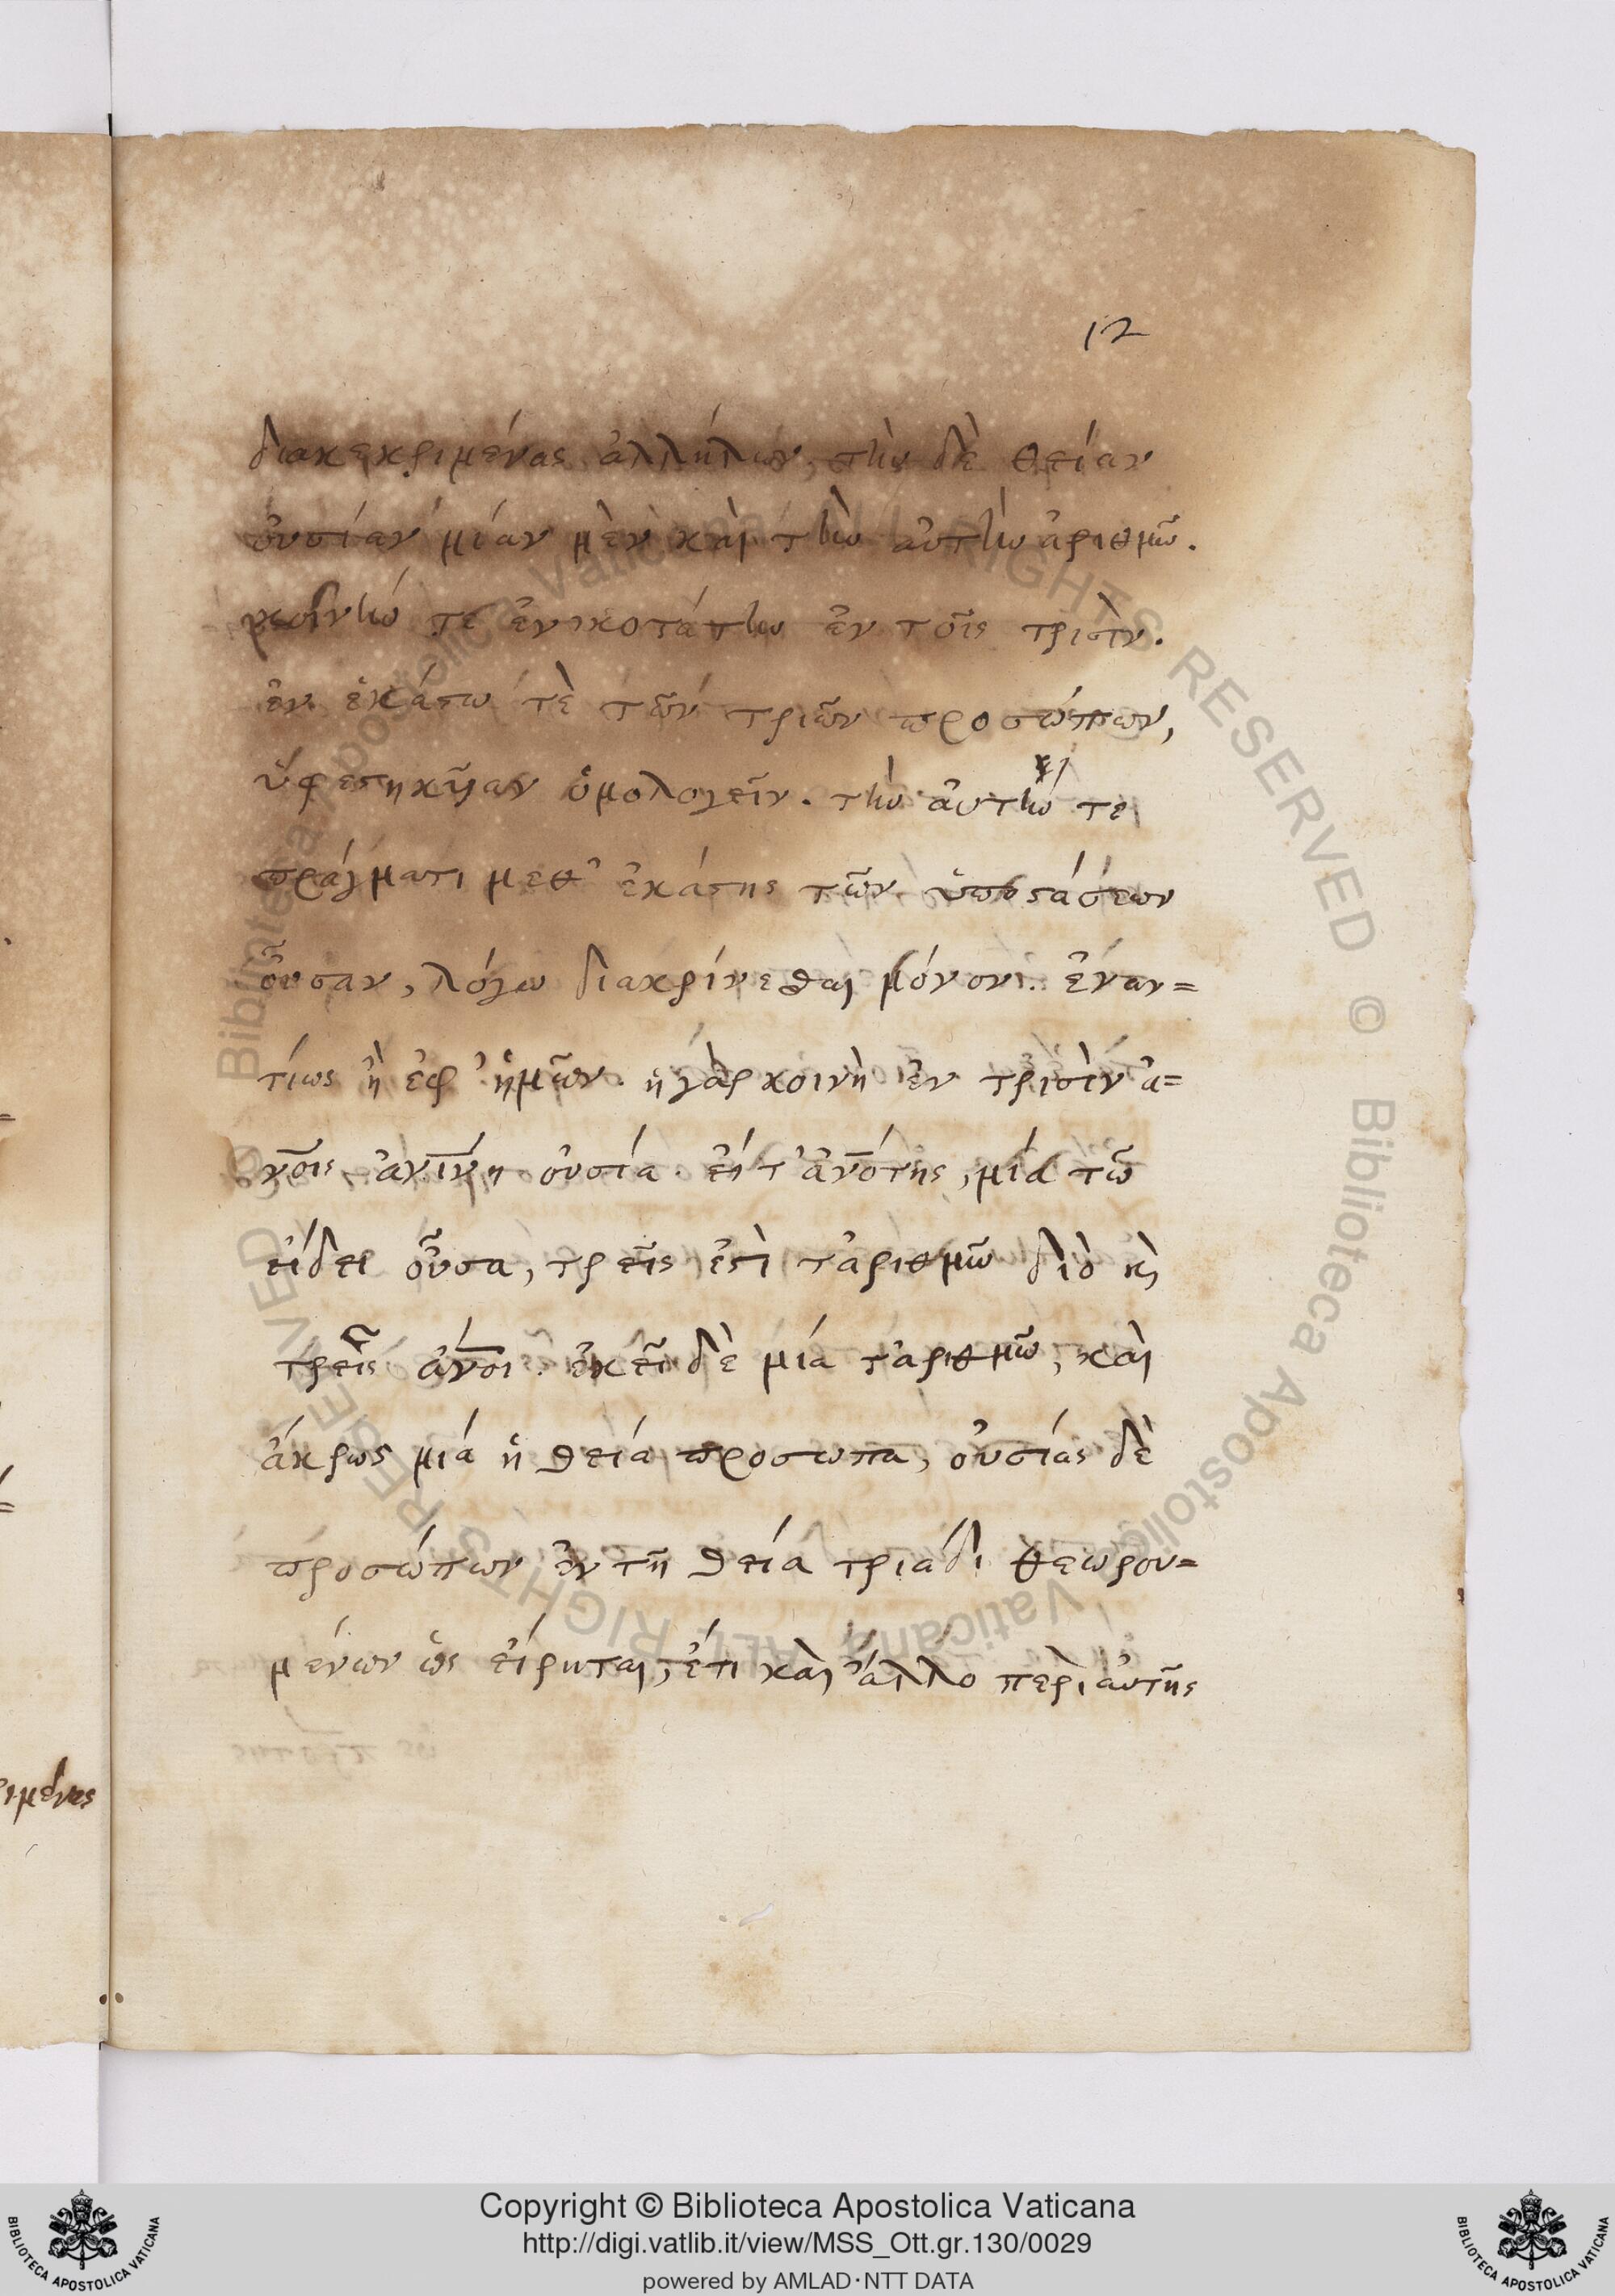 12
διακεκριμένας ἀλλήλων, τὴν δὲ θείαν
οὐσίαν μίαν μὲν καὶ τὴν αὐτὴν ἀριθμῶ.
κοινήν τε ἑνικοτάτην ἐν τοῖς τρισὶν.
ἐν ἑκάστω τὲ τῶν τριῶν προσώπων,
ὑφεστηκῦιαν ὁμολογεῖν. τὴν αὐτήν τε
πράγματι μεθ' ἑκάστης τῶν ὑποστάσεων
οὖσαν, λόγω διακρίνεσθαι μόνον. ἐναν=
τίως ἢ ἐφ' ἡμῶν. ἡ γὰρ κοινὴ ἐν τρισὶν ἀ=
νοις ἀνίνη οὐσία. εἴ τ' ἀνότης, μία τῶ
εἴδει οὖσα, τρεῖς ἐστὶ τἀριθμῶ διὸ κ
τρεῖς ἄνοι. ἐκεῖ δὲ μία τἀριθμῶ, καὶ
ἄκρως μιά ἡ θεία προσωπα, οὐσίας δὲ
προσώπων ἐν τῆ θεία τριάδι θεωρου=
μένων ὡς εἴρηται, ἔτι καὶ ἄλλο περὶ αὐτῆς
ριμένας
Copyright © Biblioteca Apostolica Vaticana
http://digi.vatlib.it/view/MSS_Ott.gr.130/0029
powered by AMLAD·NTT DATA
BIBLIOTECA APOSTOLICA VATICANA
BIBLIOTECA APOSTOLICA VATICANA
Biblioteca Apostolica Vaticana ALL RIGHTS RESERVED © Biblioteca Apostolica Vaticana ALL RIGHTS RESERVED ©